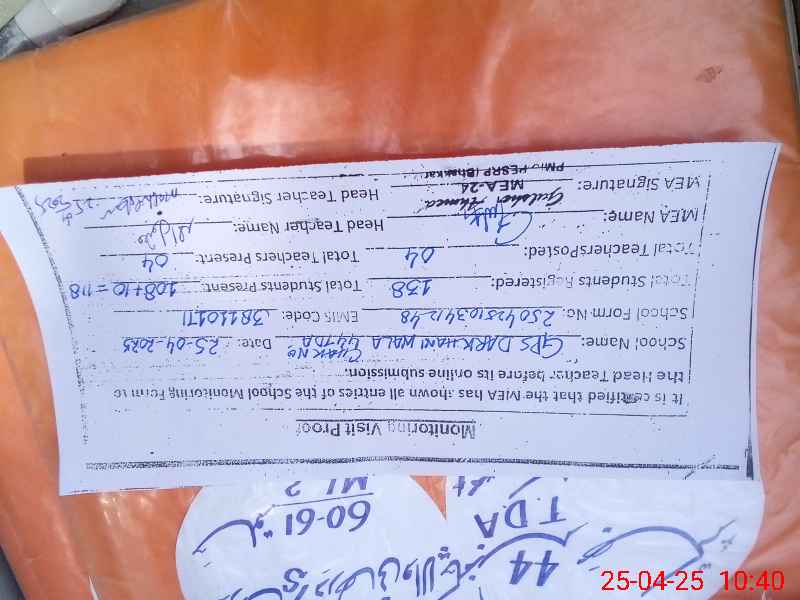 Monitoring Visit Proof
It is certified that the MEA has shown all entries of the School Monitoring Form to
the Head Teacher before its online submission.
School Name: GPS DARKHANWALA CHAK NO 44TDA Date: 25-04-2025
School Form No: 25042510341248 EMIS Code: 38110171
Total Students Registered: 138 Total Students Present: 108+10=118
Total TeachersPosted: 04 Total Teachers Present: 04
MEA Name: Head Teacher Name:
MEA Signature: Gulsher Ahmed Head Teacher Signature:
MEA-24
PMIU-PESRP (Bhakkar
44
T.D.A
60-61
ML 2
25-04-25 10:40